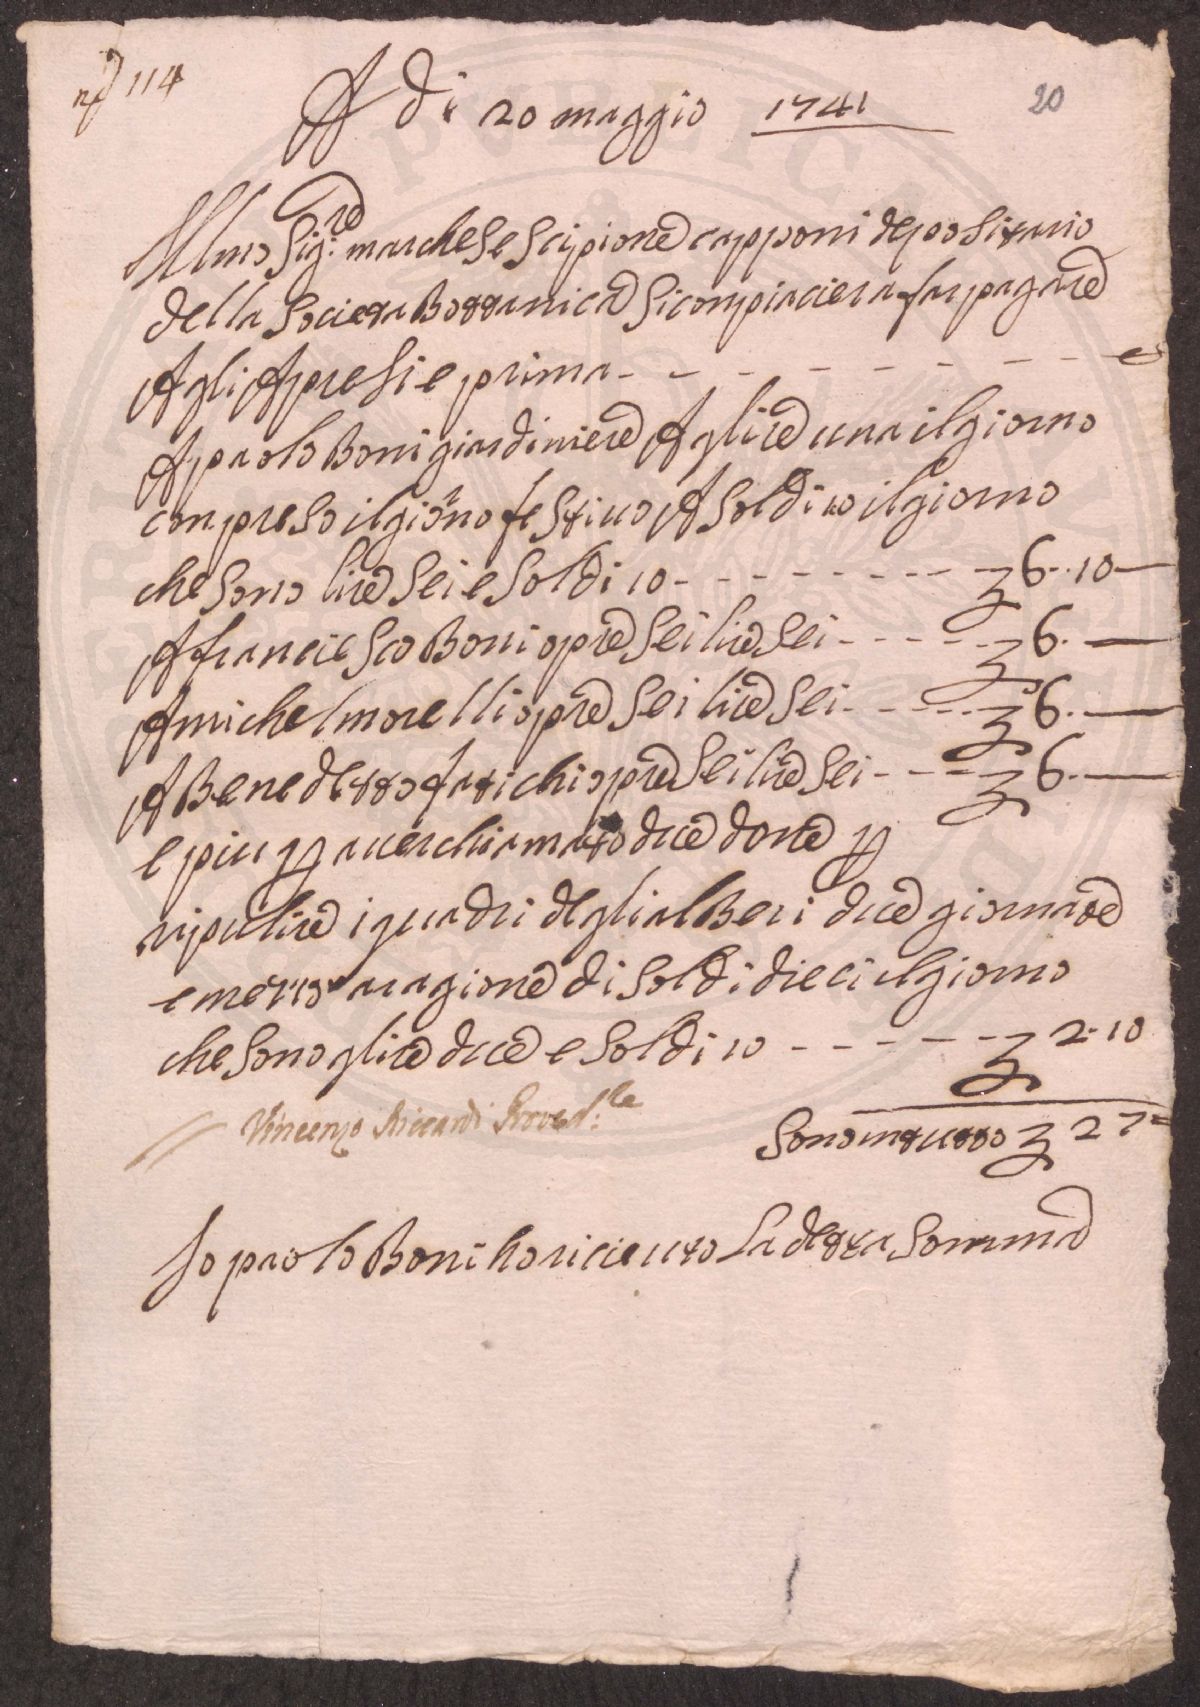 n.º 114
20
A di 20 maggio 1741
Illmo Sig.re marchese Scipione capponi depositario
della Societa Bottanica Si compiaciera far pagare
A gli Apresi e prima
A paolo Boni giardiniere A glire una il giorno
conpreso il giorno festiuo A Soldi 10 il giorno
che Sono lire Sei e Soldi 10 - - - 6. 10
A franciesco Boni opre Sei lire Sei - - - 6.
A michel morelli opre Sei lire Sei - - - 6.
A Benedetto fatichi opre Sei lire Sei - - - 6.
e piu p auer chiamato due done p
ripulire i quadri degli alBeri due giornate
e mezzo a ragione di Soldi dieci il giorno
che Sono glire due e Soldi 10 - - - 2. 10
Vincenzo Riccardi Proved.le
Sono in tutto 27
Io paolo Boni ho riceuuto La detta Somma